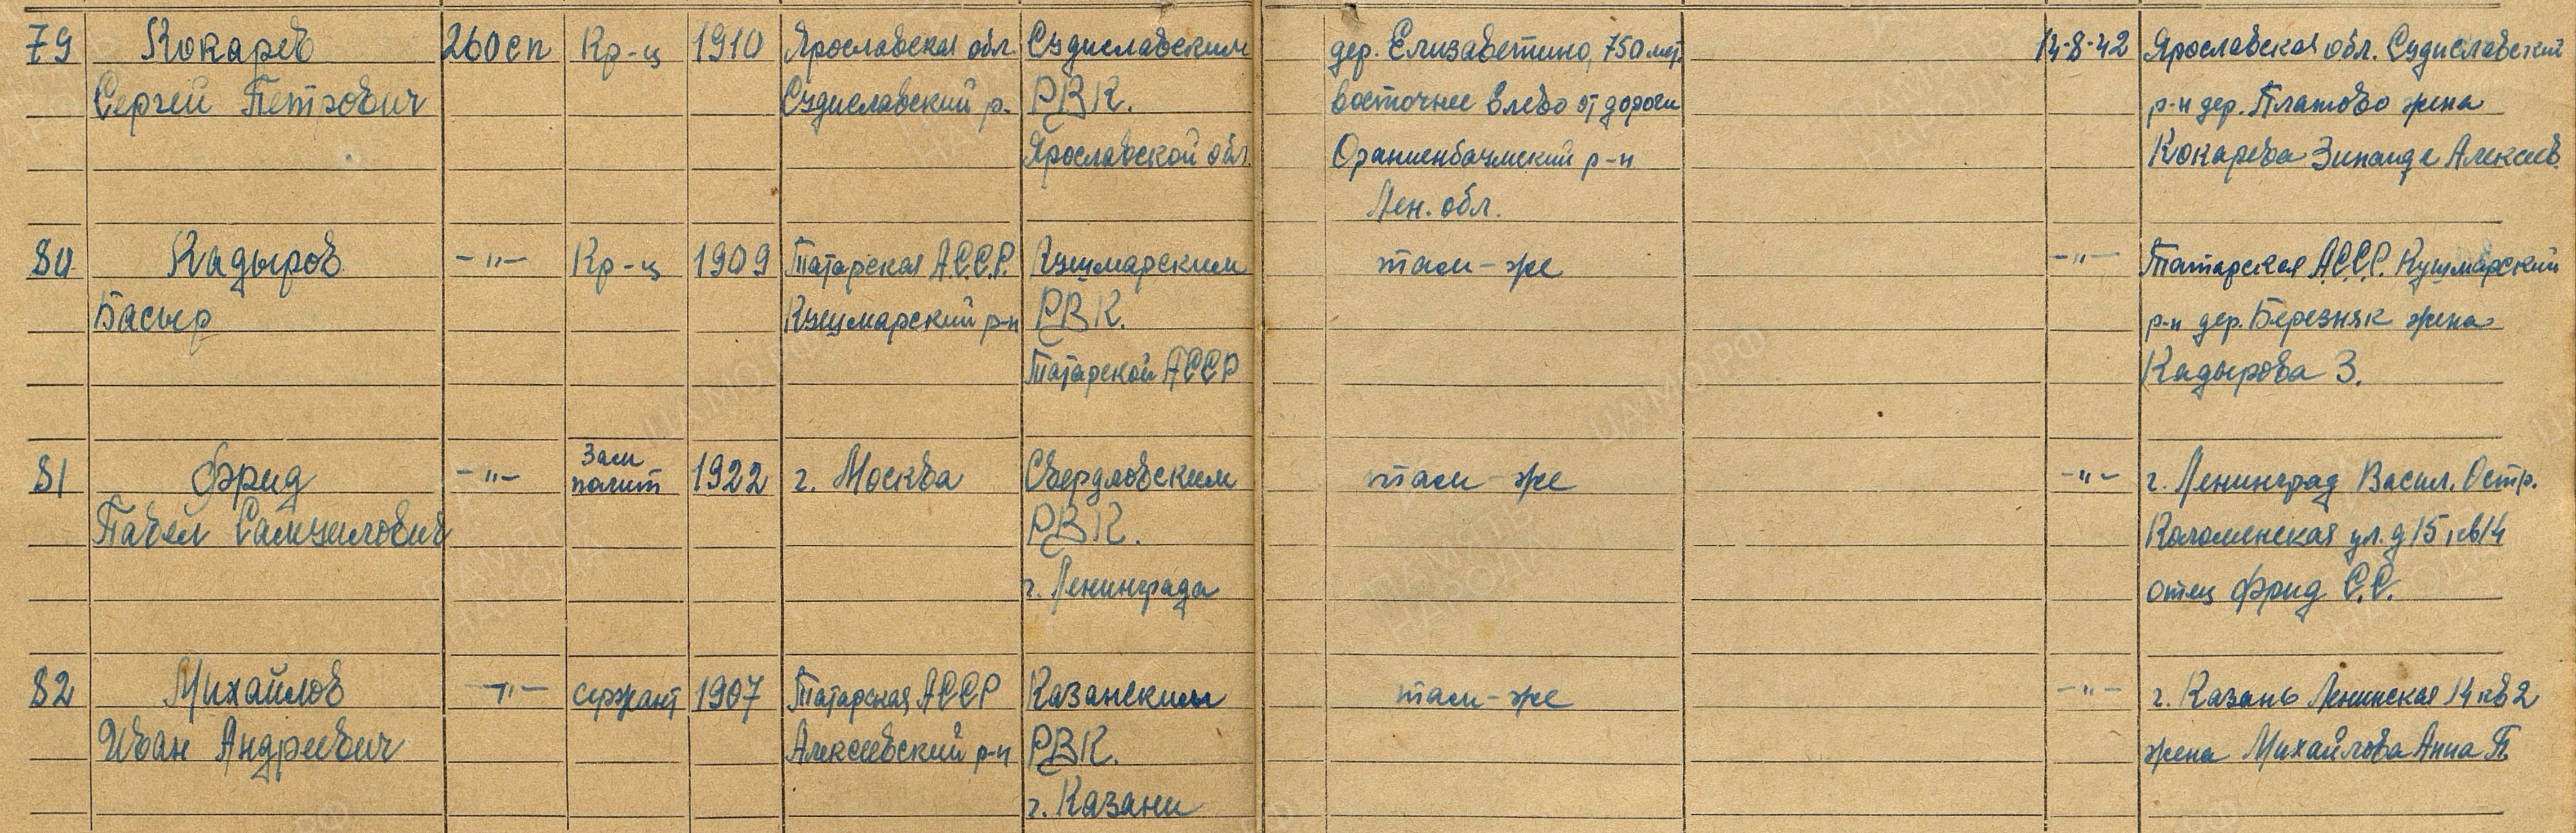 79 Кокарев 260сп Кр-ц 1910 Ярославская обл. Судиславским дер. Елизаветино, 750 мет. 14-8-42 Ярославская обл. Судиславский
Сергей Петрович Судиславский р. РВК. восточнее влево от дороги р-н дер. Платово жена
Ярославской обл. Ораниенбаумский р-н Кокарева Зинаида Алексеев.
Лен. обл.
80 Кадыров -"- Кр-ц 1909 Татарская А.С.С.Р. Кушмарским там-же -"- Татарская А.С.С.Р. Кушмарский
Басыр Кушмарский р-н РВК. р-н дер. Березняк жена
Татарской АССР Кадырова З.
81 Фрид -"- Зам полит 1922 г. Москва Свердловским там-же -"- г. Ленинград Васил. Остр.
Павел Самуилович РВК. Коломенская ул. д 15, кв 14
г. Ленинграда отец Фрид С.С.
82 Михайлов -"- сержант 1907 Татарская АССР Казанским там-же -"- г. Казань Ленинская 14 кв 2
Иван Андреевич Алексеевский р-н РВК. жена Михайлова Анна П.
г. Казани